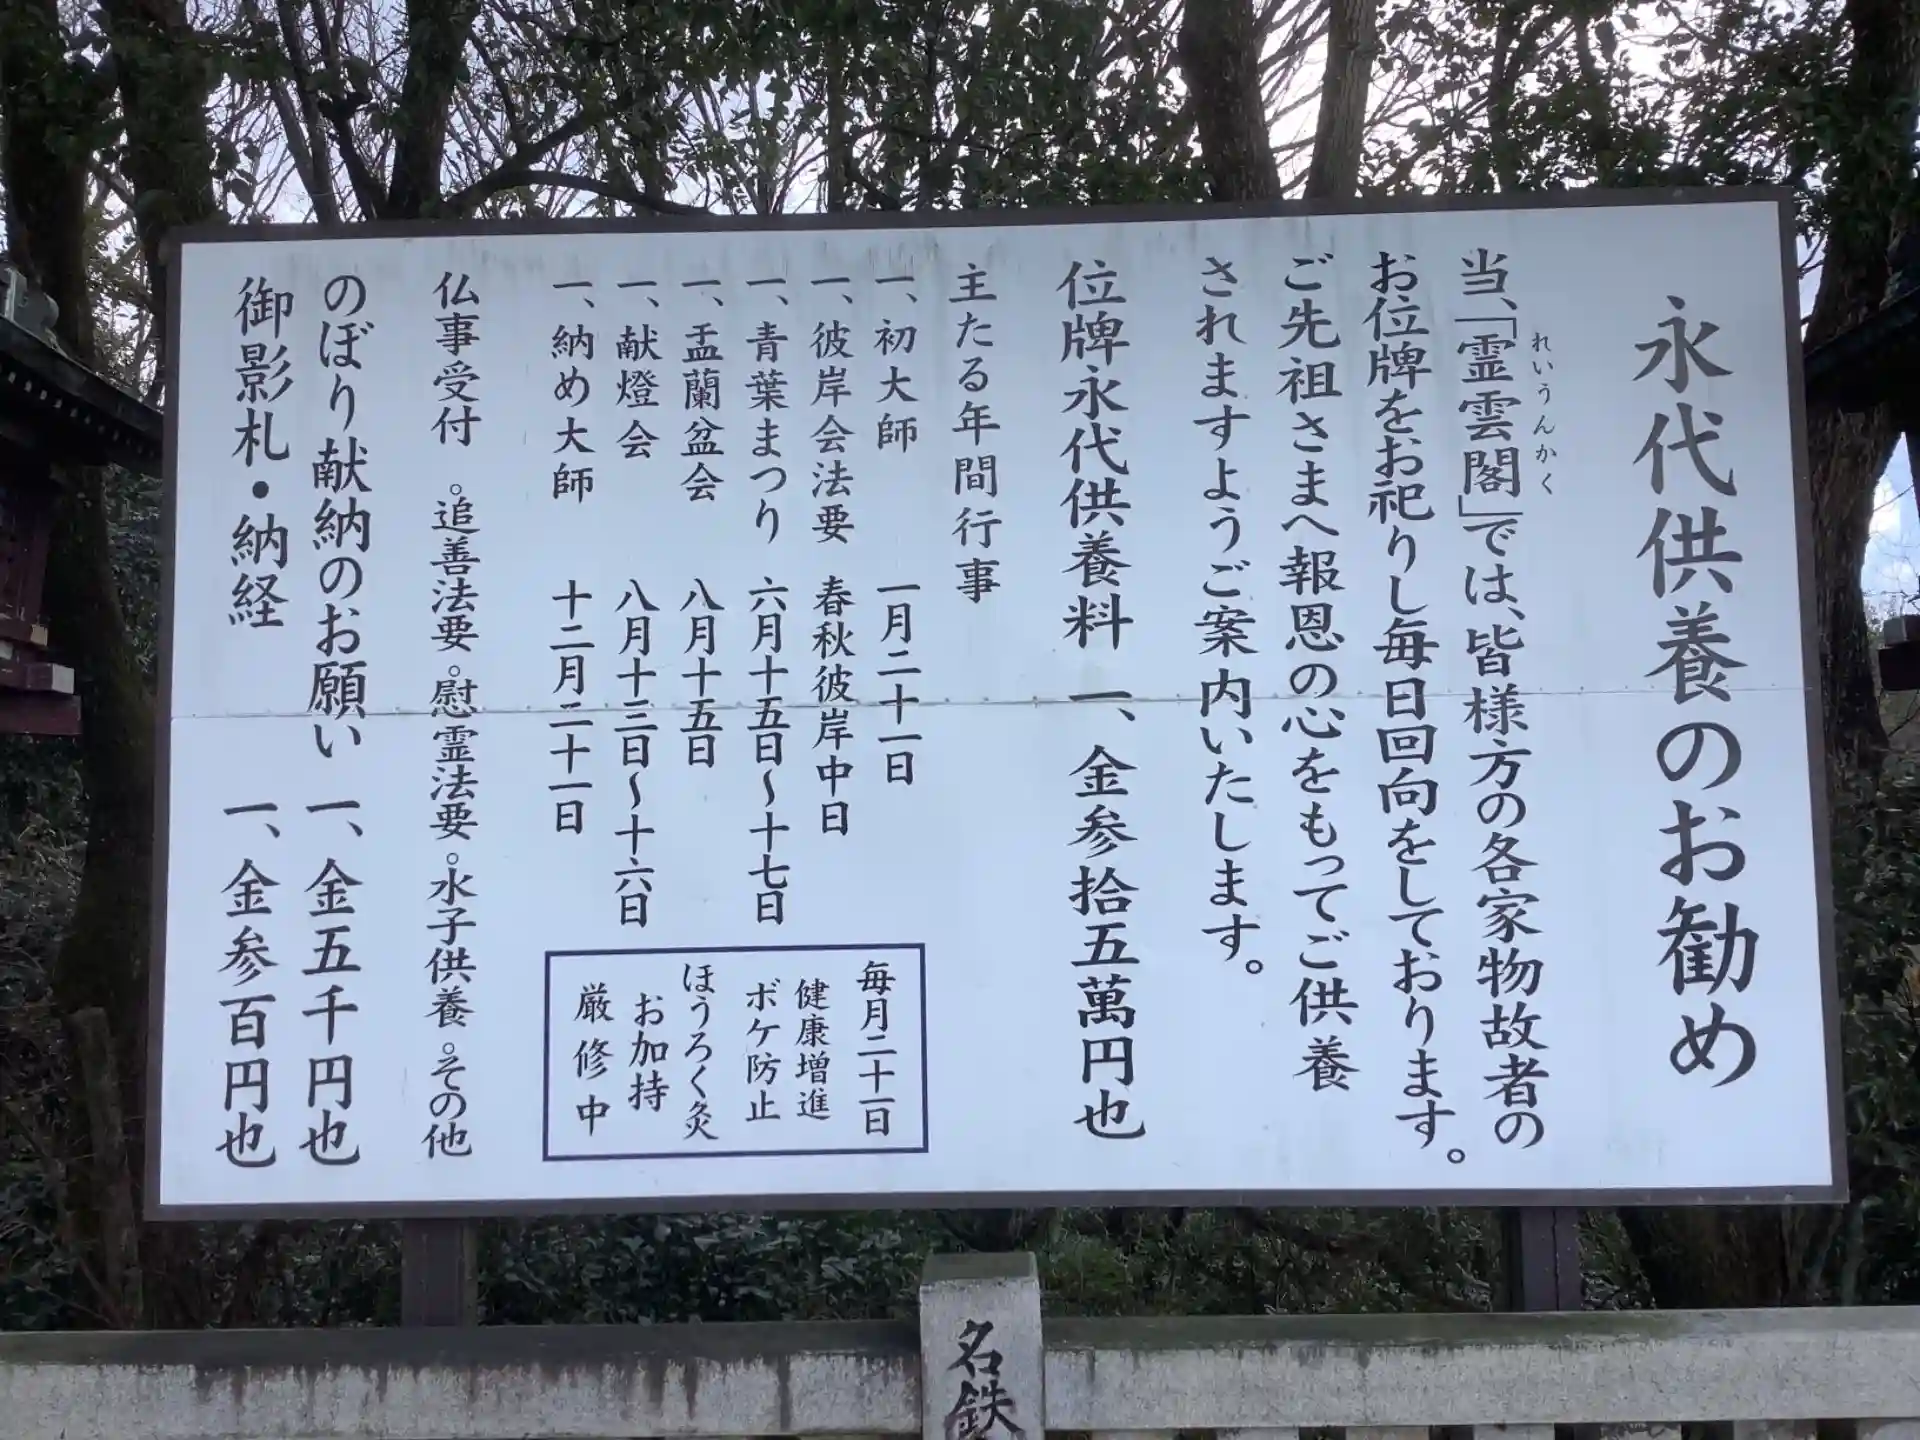 永代供養のお勧め
当、「霊雲閣」では、皆様方の各家物故者の
れいうんかく
お位牌をお祀りし毎日回向をしております。
ご先祖さまへ報恩の心をもってご供養
されますようご案内いたします。
位牌永代供養料 一、金参拾五萬円也
主たる年間行事
一、初大師 一月二十一日
一、彼岸会法要 春秋彼岸中日
一、青葉まつり 六月十五日〜十七日
一、盂蘭盆会 八月十五日
一、献燈会 八月十三日〜十六日
一、納め大師 十二月二十一日
毎月二十一日
健康増進
ボケ防止
ほうろく灸
お加持
厳修中
仏事受付 。追善法要 。慰霊法要 。水子供養 。その他
のぼり献納のお願い 一、金五千円也
御影札・納経 一、金参百円也
名鉄